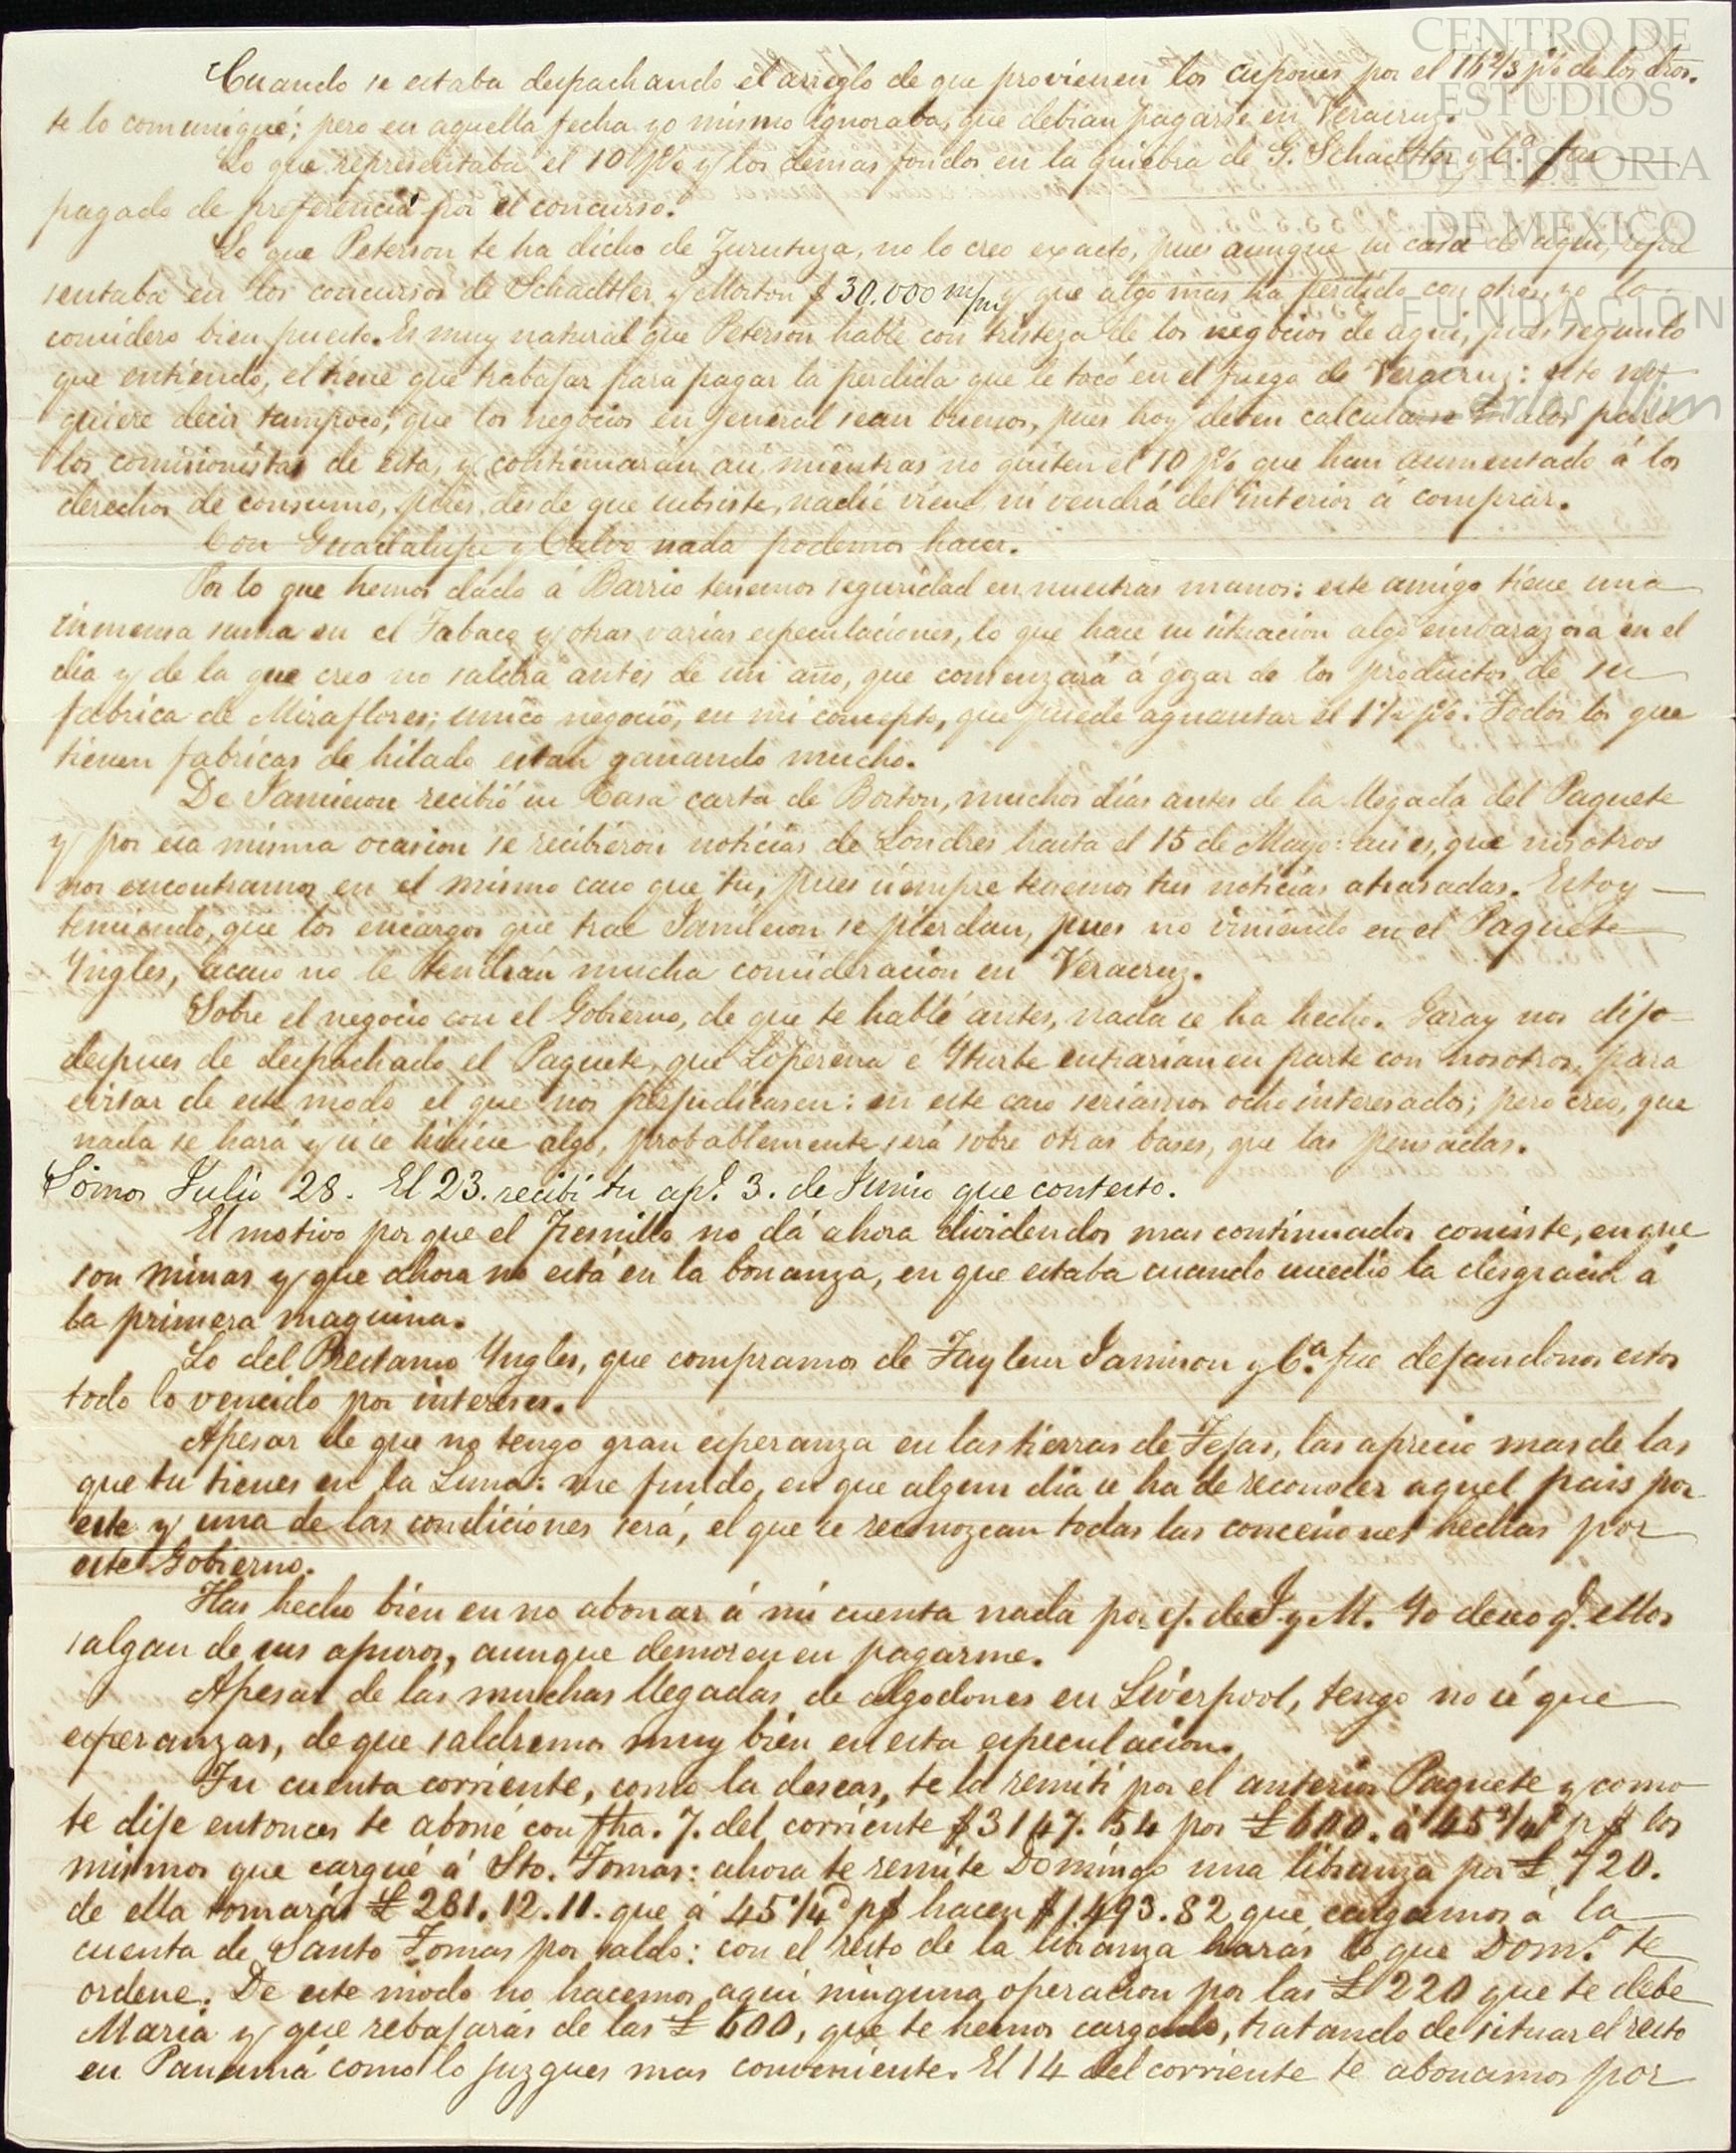 CENTRO DE
ESTUDIOS
DE HISTORIA
DE MEXICO
FUNDACIÓN
Carlos Slim
Cuando se estaba despachando el arreglo de que provienen los cupones por el 16 2/3 p% de los dros.
te lo comuniqué; pero en aquella fecha yo mismo ignoraba, que debian pagarse en Veracruz.
Lo que representaba el 10 p% y los demas fondos en la quiebra de G. Schaeltler y Cª. fue
pagado de preferencia por el concurso.
Lo que Peterson te ha dicho de Zurutuza, no lo creo exacto, pues aunque su casa de aquí, repre
sentaba en los concursos de Schaeltler y Morton $ 30.000 m/m y que algo mas ha perdido con otros, yo lo
considero bien puesto. Es muy natural que Peterson hable con tristeza de los negocios de aqui, pues segun lo
que entiendo, el tiene que trabajar para pagar la perdida que le tocó en el fuego de Veracruz: esto no
quiere decir tampoco, que los negocios en general sean buenos, pues hoy deben calcularse malos para
los comisionistas de esta, y continuarán asi, mientras no quiten el 10 p% que han aumentado á los
derechos de consumo, pues, desde que subsiste, nadie viene ni vendrá del interior á comprar.
Con Guadalupe y Calvo nada podemos hacer.
Por lo que hemos dado á Barrio tenemos seguridad en nuestras manos: este amigo tiene una
inmensa suma en el Tabaco y otras varias especulaciones, lo que hace su situacion algo embarazosa en el
dia y de la que creo no saldrá antes de un año, que comenzará á gozar de los productos de su
fabrica de Miraflores; unico negocio, en mi concepto, que puede aguantar el 1½ p%. Todos los que
tienen fabricas de hilado estan ganando mucho.
De Jamison recibió su Casa carta de Boston, muchos dias antes de la llegada del Paquete
y por esa misma ocasion se recibieron noticias de Londres hasta el 15 de Mayo: asi es, que nosotros
nos encontramos en el mismo caso que tu, pues siempre tenemos tus noticias atrasadas. Estoy
temiendo, que los encargos que trae Jamison se pierdan, pues no viniendo en el Paquete
Yngles, acaso no le tendran mucha consideracion en Veracruz.
Sobre el negocio con el Gobierno, de que te hablé antes, nada se ha hecho. Garay nos dijo
despues de despachado el Paquete, que Loperena é Yturbe entrarian en parte con nosotros, para
evitar de este modo el que nos perjudicasen: en este caso seriamos ocho interesados; pero creo, que
nada se hará y si se hiciese algo, probablemente será sobre otras bases, que las pensadas.
Somos Julio 28. El 23. recibí tu apl. 3. de Junio que contesto.
El motivo por que el Fresnillo no dá ahora dividendos mas continuados consiste, en que
son minas y que ahora no está en la bonanza, en que estaba cuando sucedió la desgracia á
la primera maquina.
Lo del Prestamo Yngles, que compramos de Tayleur Jamison y Cª. fue dejandonos estos
todo lo vencido por intereses.
Apesar de que no tengo gran esperanza en las tierras de Tejas, las aprecio mas de las
que tu tienes en la Luna: me fundo, en que algun dia se ha de reconocer aquel pais por
este y una de las condiciones será, el que se reconozcan todas las concesiones hechas por
este Gobierno.
Has hecho bien en no abonar á mi cuenta nada por c/. de J. y M. Yo deseo q. ellos
salgan de sus apuros, aunque demoren en pagarme.
Apesar de las muchas llegadas de algodones en Liverpool, tengo no sé que
esperanzas, de que saldremos muy bien en esta especulacion.
Tu cuenta corriente, como la deseas, te la remití por el anterior Paquete y como
te dije entonces te aboné con fha. 7. del corriente $ 3147. 54 por £ 600. á 45¾ᵈ p $ los
mismos que cargué á Sto. Tomas: ahora te remite Domingo una libranza por £ 720.
de ella tomarás £ 281. 12. 11. que á 45¼ᵈ p$ hacen $ 1,493.82 que cargamos á la
cuenta de Santo Tomas por saldo: con el resto de la libranza harás lo que Domº. te
ordene. De este modo no hacemos aqui ninguna operacion por las £ 220 que te debe
Maria y que rebajarás de las £ 600, que te hemos cargado, tratando de situar el resto
en Panamá como lo juzgues mas conveniente. El 14 del corriente te abonamos por